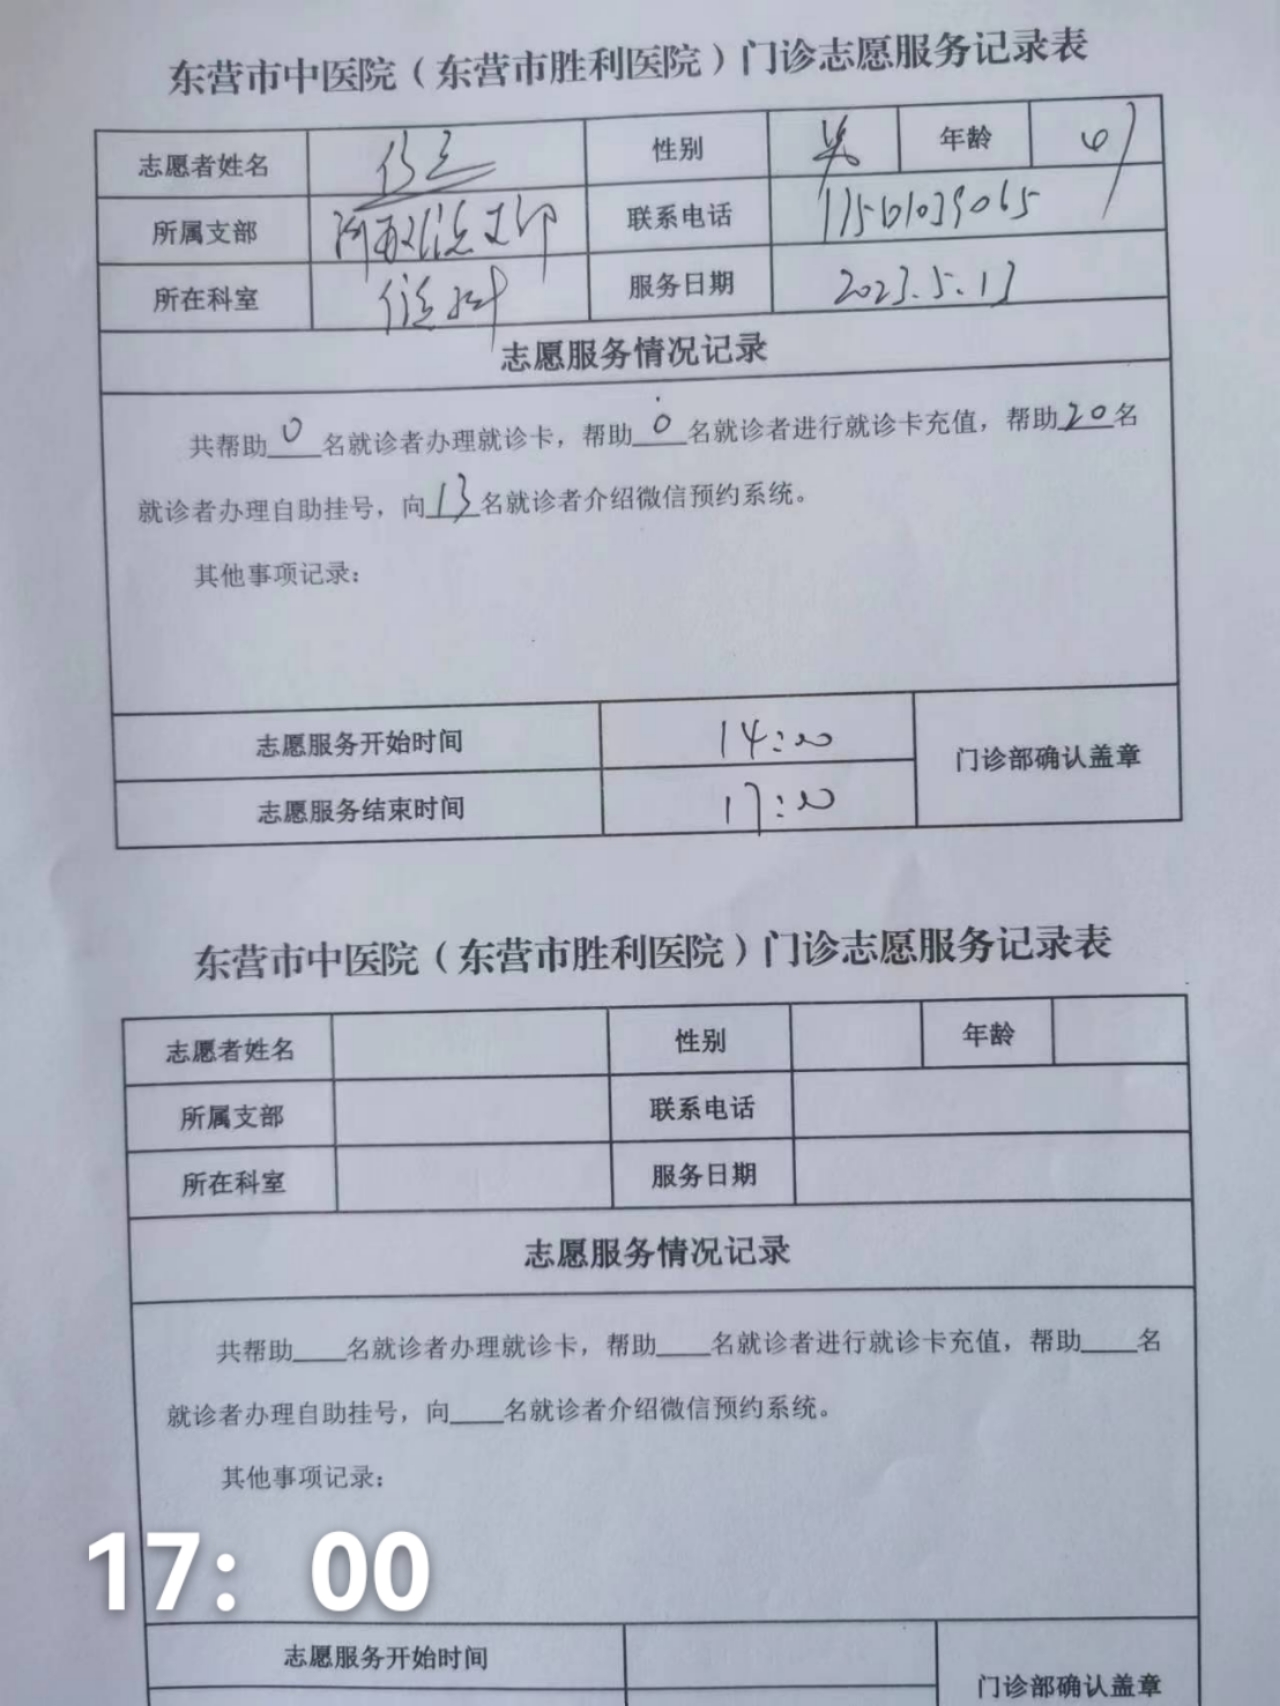 东营市中医院（东营市胜利医院）门诊志愿服务记录表
志愿者姓名 性别 男 年龄
所属支部 联系电话
所在科室 信息科 服务日期 2023.5.13
志愿服务情况记录
共帮助0名就诊者办理就诊卡，帮助0名就诊者进行就诊卡充值，帮助20名
就诊者办理自助挂号，向13名就诊者介绍微信预约系统。
其他事项记录：
志愿服务开始时间 14:00
门诊部确认盖章
志愿服务结束时间 17:00
东营市中医院（东营市胜利医院）门诊志愿服务记录表
志愿者姓名 性别 年龄
所属支部 联系电话
所在科室 服务日期
志愿服务情况记录
共帮助____名就诊者办理就诊卡，帮助____名就诊者进行就诊卡充值，帮助____名
就诊者办理自助挂号，向____名就诊者介绍微信预约系统。
其他事项记录：
17：00
志愿服务开始时间
门诊部确认盖章